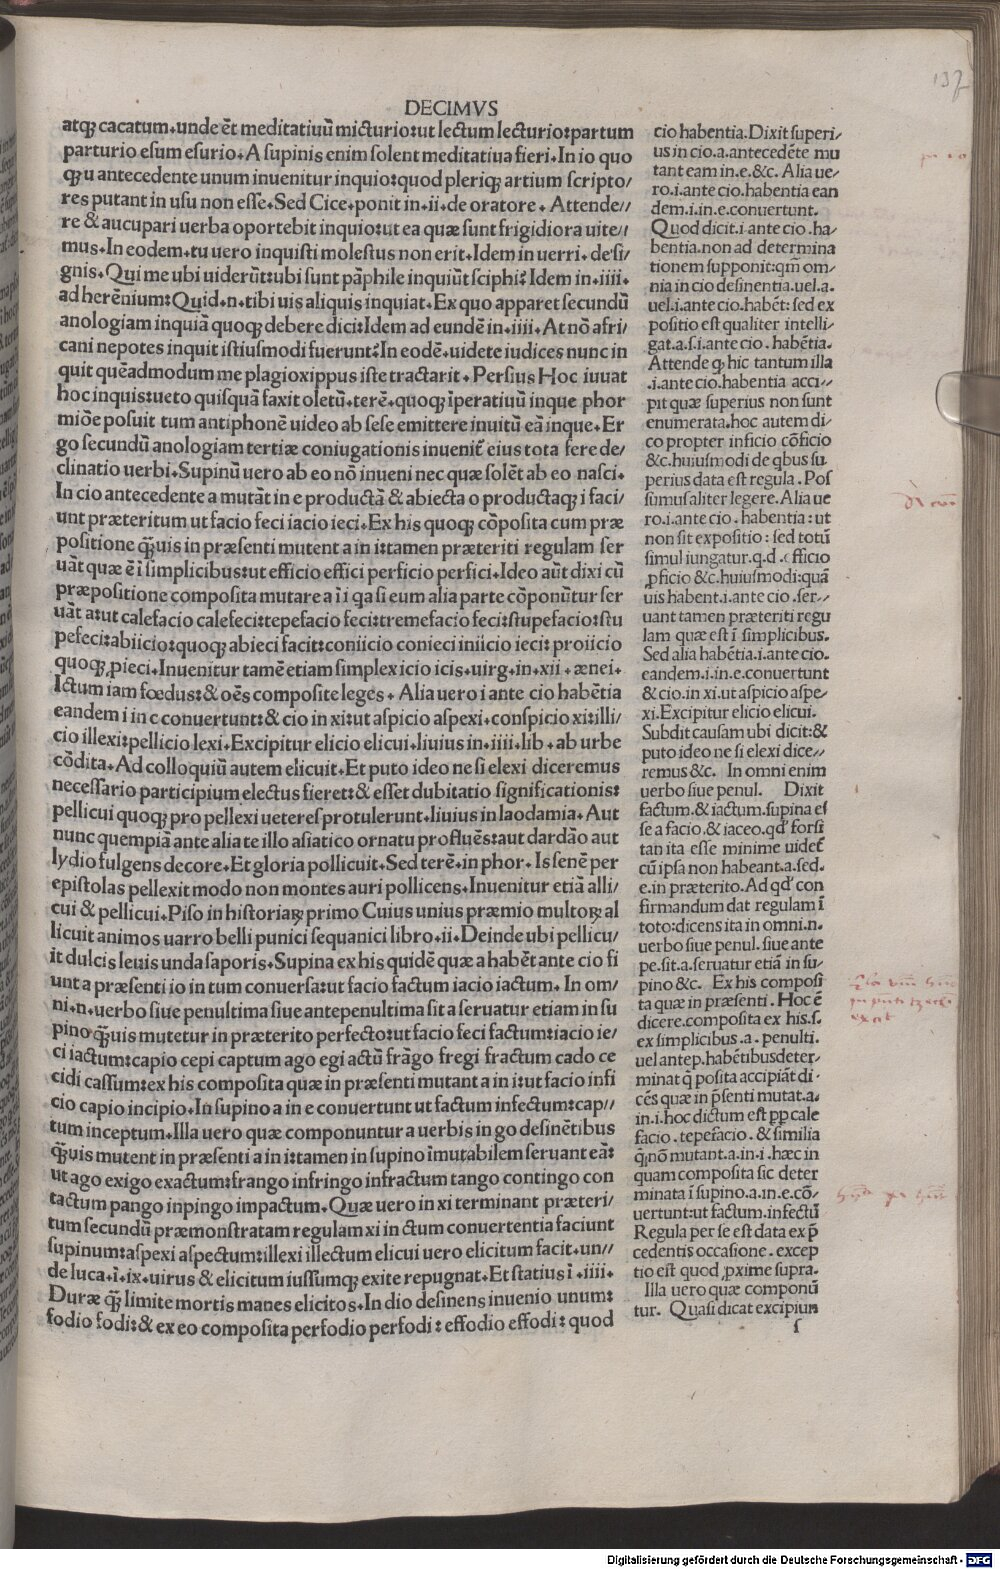 137
DECIMVS
atq̃ cacatum.unde ẽt meditatiuũ micturio:ut lectum lecturio:partum
parturio esum esurio.A supinis enim solent meditatiua fieri.In io quo
q̃ u antecedente unum inuenitur inquio:quod pleriq̃ artium scripto/
res putant in usu non esse.Sed Cice.ponit in.ii.de oratore. Attende//
re & aucupari uerba oportebit inquio:ut ea quæ sunt frigidiora uite//
mus.In eodem.tu uero inquisti molestus non erit.Idem in uerri.de si/
gnis.Qui me ubi uiderũt:ubi sunt pãphile inquiũt sciphi? Idem in.iiii.
ad herẽnium:Quid.n.tibi uis aliquis inquiat.Ex quo apparet secundũ
anologiam inquiã quoq̃ debere dici:Idem ad eundẽ in.iiii.At nõ afri/
cani nepotes inquit istiusmodi fuerunt?In eodẽ.uidete iudices nunc in
quit quẽadmodum me plagioxippus iste tractarit.Persius Hoc iuuat
hoc inquis:ueto quisquã faxit oletũ.terẽ.quoq̃ ĩperatiuũ inque phor
miõe posuit tum antiphonẽ uideo ab sese emittere inuitũ eã inque.Er
go secundũ anologiam tertiæ coniugationis inuenit̃ eius tota fere de/
clinatio uerbi.Supinũ uero ab eo nõ inueni nec quæ solẽt ab eo nasci.
In cio antecedente a mutãt in e productã & abiecta o productaq̃ i faci/
unt præteritum ut facio feci iacio ieci.Ex his quoq̃ cõposita cum præ
positione q̃uis in præsenti mutent a in i:tamen præteriti regulam ser
uãt quæ ẽ ĩ simplicibus:ut efficio effici perficio perfici.Ideo aũt dixi cũ
præpositione composita mutare a ĩ i qa si eum alia parte cõponũtur ser
uãt a:ut calefacio calefeci:tepefacio feci:tremefacio feci:stupefacio:stu
pefeci:abiicio:quoq̃ abieci facit:coniicio conieci iniicio ieci:proiicio
quoq̃ ꝓieci.Inuenitur tamẽ etiam simplex icio icis.uirg.in.xii.ænei.
Ictum iam fœdus:& oẽs composite leges. Alia uero i ante cio habẽtia
eandem i in e conuertunt:& cio in xi:ut aspicio aspexi.conspicio xi:illi/
cio illexi:pellicio lexi.Excipitur elicio elicui.liuius in.iiii.lib.ab urbe
cõdita.Ad colloquiũ autem elicuit.Et puto ideo ne si elexi diceremus
necessario participium electus fieret:& esset dubitatio significationis:
pellicui quoq̃ pro pellexi ueteres protulerunt.liuius in laodamia.Aut
nunc quempiã ante alia te illo asiatico ornatu profluẽs:aut dardão aut
lydio fulgens decore.Et gloria pollicuit.Sed terẽ.in phor.Is senẽ per
epistolas pellexit modo non montes auri pollicens.Inuenitur etiã alli/
cui & pellicui.Piso in historiaꝝ primo Cuius unius præmio multoꝝ al
licuit animos uarro belli punici sequanici libro.ii.Deinde ubi pellicu/
it dulcis leuis unda saporis.Supina ex his quidẽ quæ a habẽt ante cio fi
unt a præsenti io in tum conuersa:ut facio factum iacio iactum. In om/
ni.n.uerbo siue penultima siue antepenultima sit a seruatur etiam in su
pino q̃uis mutetur in præterito perfecto:ut facio feci factum:iacio ie/
ci iactum:capio cepi captum ago egi actũ frãgo fregi fractum cado ce
cidi cassum:ex his composita quæ in præsenti mutant a in i:ut facio infi
cio capio incipio.In supino a in e conuertunt ut factum infectum:cap//
tum inceptum.Illa uero quæ componuntur a uerbis in go desinẽtibus
q̃uis mutent in præsenti a in i:tamen in supino ĩmutabilem seruant eã:
ut ago exigo exactum:frango infringo infractum tango contingo con
tactum pango inpingo impactum.Quæ uero in xi terminant præteri/
tum secundũ præmonstratam regulam xi in ctum conuertentia faciunt
supinum:aspexi aspectum:illexi illectum elicui uero elicitum facit.un//
de luca.ĩ.ix.uirus & elicitum iussumq̃ exite repugnat.Et statius ĩ.iiii.
Duræ q̃ limite mortis manes elicitos.In dio desinens inuenio unum:
fodio fodi:& ex eo composita perfodio perfodi : effodio effodi: quod
cio habentia.Dixit superi/
us in cio.a.antecedẽte mu
tant eam in.e.&c. Alia ue/
ro.i.ante cio.habentia ean
dem.i.in.e.conuertunt.
Quod dicit.i.ante cio.ha/
bentia.non ad determina
tionem supponit:qm̃ om/
nia in cio desinentia.uel.a.
uel.i.ante cio.habẽt: sed ex
positio est qualiter intelli/
gat.a.s.i.ante cio. habẽtia.
Attende q̃ hic tantum illa
.i.ante cio.habentia acci//
pit quæ superius non sunt
enumerata.hoc autem di/
co propter inficio cõficio
&c.huiusmodi de qbus su
perius data est regula . Pos
sumus aliter legere.Alia ue
ro.i.ante cio.habentia : ut
non sit expositio : sed totũ
simul iungatur.q.d. efficio
ꝓficio &c.huiusmodi:quã
uis habent.i.ante cio.ser/
uant tamen præteriti regu
lam quæ est ĩ simplicibus.
Sed alia habẽtia.i.ante cio.
eandem.i.in.e.conuertunt
& cio.in xi.ut aspicio aspe/
xi.Excipitur elicio elicui.
Subdit causam ubi dicit:&
puto ideo ne si elexi dice//
remus &c. In omni enim
uerbo siue penul. Dixit
factum.& iactum.supina es
se a facio.& iaceo.qđ forsi
tan ita esse minime uidet̃
cũ ipsa non habeant.a.sed.
e.in præterito.Ad qđ con
firmandum dat regulam ĩ
toto:dicens ita in omni.n.
uerbo siue penul.siue ante
pe.sit.a.seruatur etiã in su/
pino &c. Ex his composi
ta quæ in præsenti . Hoc ẽ
dicere.composita ex his.s.
ex simplicibus .a. penulti.
uel antep.habẽtibusdeter/
minat q̃ posita accipiãt di.
cẽs quæ in p̃senti mutat.a.
in.i.hoc dictum est ꝓp cale
facio.tepefacio.& similia
q̃ nõ mutant.a.in.i.hæc in
quam composita sic deter
minata ĩ supino.a.in.e.cõ/
uertunt:ut factum.infectũ
Regula per se est data ex p̃
cedentis occasione.excep
tio est quod ꝓxime supra.
Illa uero quæ componũ
tur. Quasi dicat excipiun
s
Digitalisierung gefördert durch die Deutsche Forschungsgemeinschaft - DFG